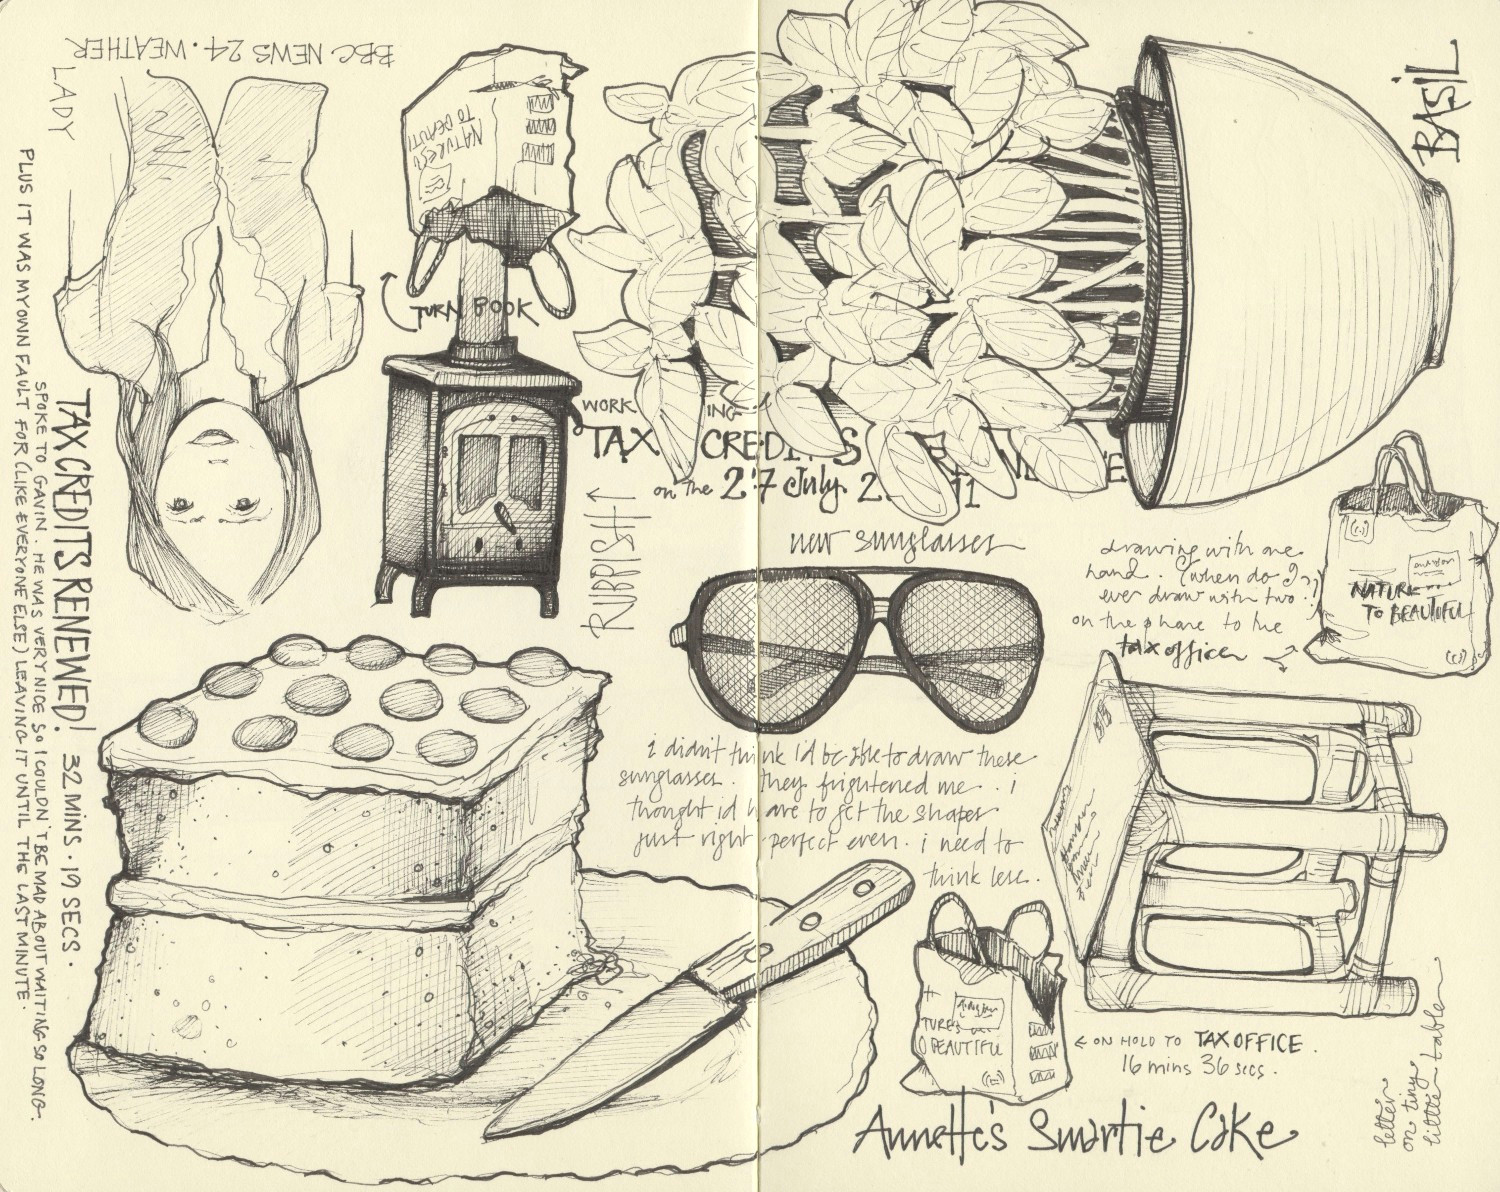 BBC NEWS 24 · WEATHER
LADY
PLUS IT WAS MY OWN FAULT FOR (LIKE EVERYONE ELSE) LEAVING IT UNTIL THE LAST MINUTE.
SPOKE TO GAVIN. HE WAS VERY NICE SO I COULDN'T BE MAD ABOUT WAITING SO LONG.
TAX CREDITS RENEWED! 32 MINS · 19 SECS ·
NATURES
TO BEAUTI
TURN BOOK
RUBBISH ↑
BASIL
WORKING
TAX CREDITS
on the 27 July 2011
new sunglasses
i didn't think i'd be able to draw these
sunglasses. they frightened me.. i
thought i'd have to get the shapes
just right - perfect even. i need to
think less.
drawing with one
hand. (when do I
ever draw with two?!)
on the phone to the
tax office
NATURE
TO BEAUTIFUL
TURES
O BEAUTIFUL
← ON HOLD TO TAX OFFICE.
16 mins 36 secs.
letter
on tiny
little table
Annette's Smartie Cake